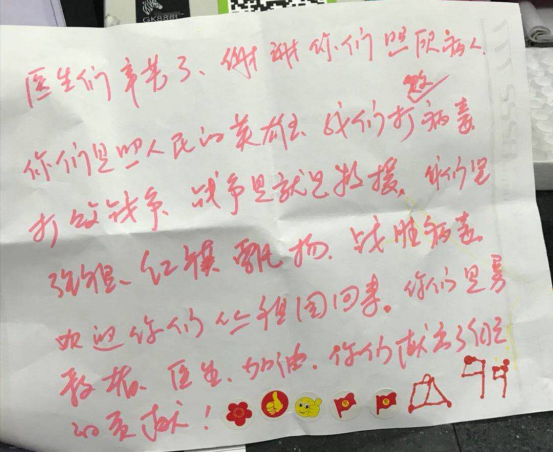 GK888t
医生们辛苦了、谢谢你们照顾病人.
你们是人民的英雄、我们打败病毒
打败战争、战争是就是救援、你们是
红旗飘扬. 战胜病毒
欢迎你们 祖国回来。你们是勇
医生、加油、你们献出了
的贡献！